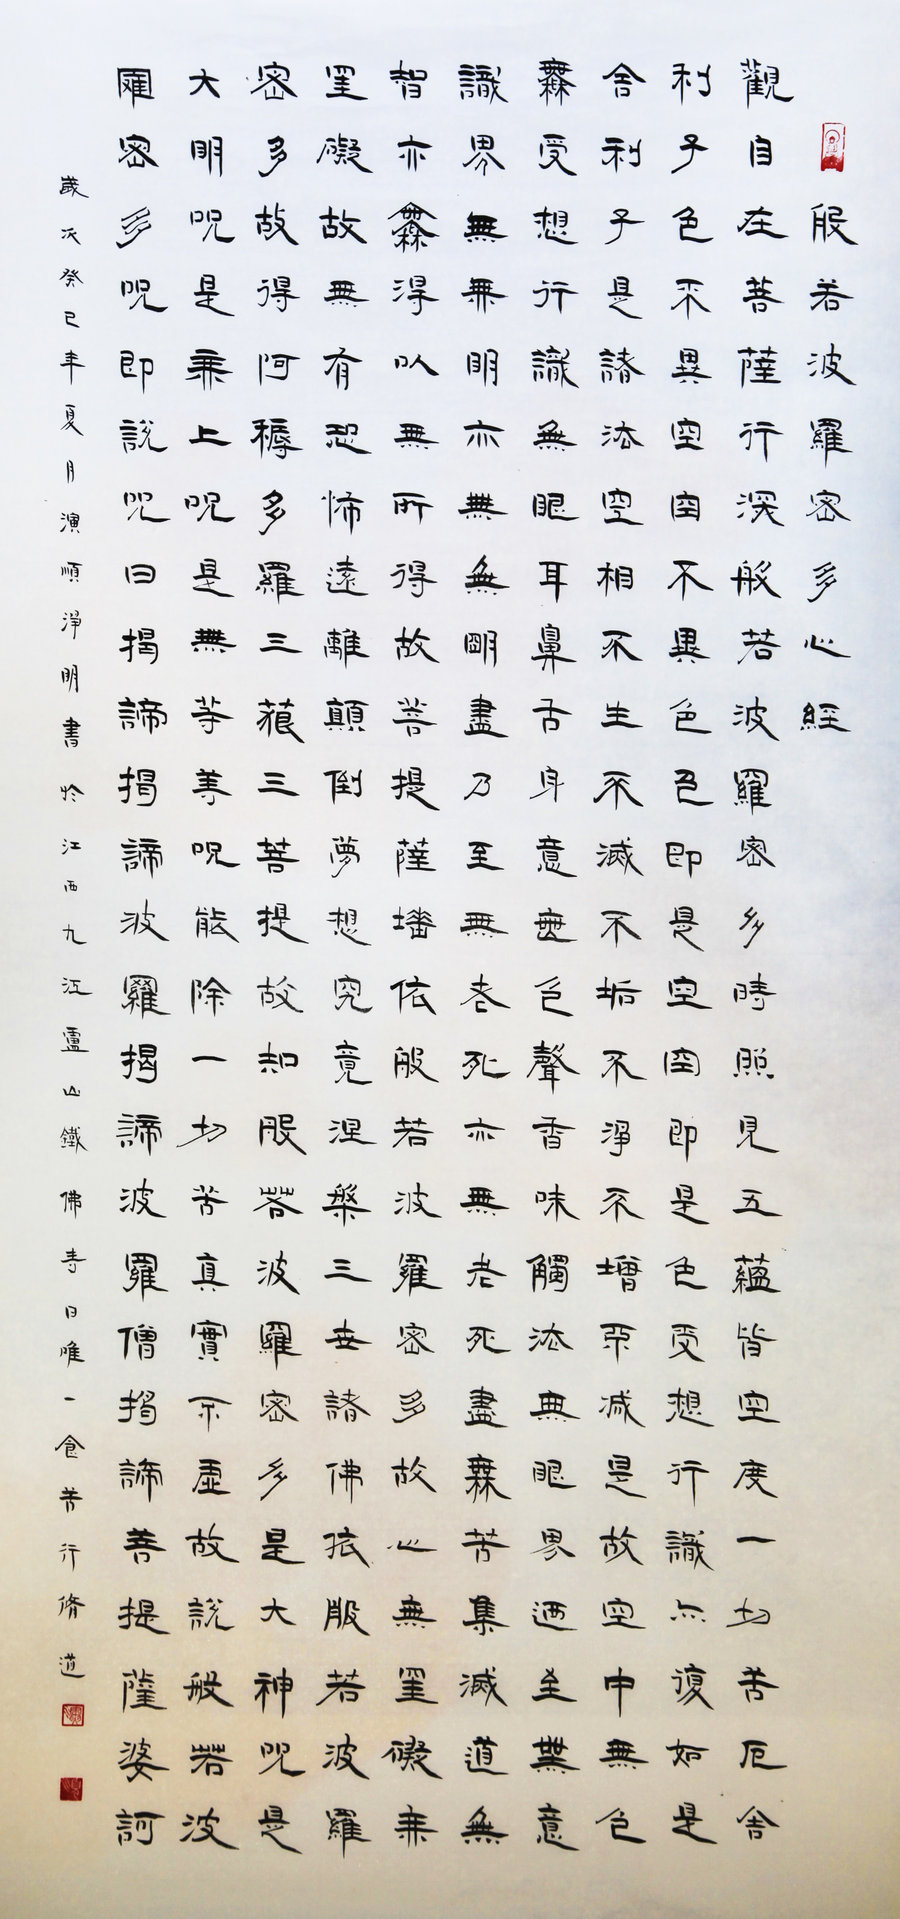 般若波羅密多心經
觀自在菩薩行深般若波羅密多時照見五蘊皆空度一切苦厄舍
利子色不異空空不異色色即是空空即是色受想行識亦復如是
舍利子是諸法空相不生不滅不垢不淨不增不減是故空中無色
無受想行識無眼耳鼻舌身意無色聲香味觸法無眼界迺至無意
識界無無明亦無無明盡乃至無老死亦無老死盡無苦集滅道無
智亦無得以無所得故菩提薩埵依般若波羅密多故心無罣礙無
罣礙故無有恐怖遠離顛倒夢想究竟涅槃三世諸佛依般若波羅
密多故得阿耨多羅三藐三菩提故知般若波羅密多是大神呪是
大明呪是無上呪是無等等呪能除一切苦真實不虛故說般若波
羅密多呪即說呪曰揭諦揭諦波羅揭諦波羅僧揭諦菩提薩婆訶
歲次癸巳年夏月演順淨明書於江西九江盧山鐵佛寺日唯一食苦行脩道